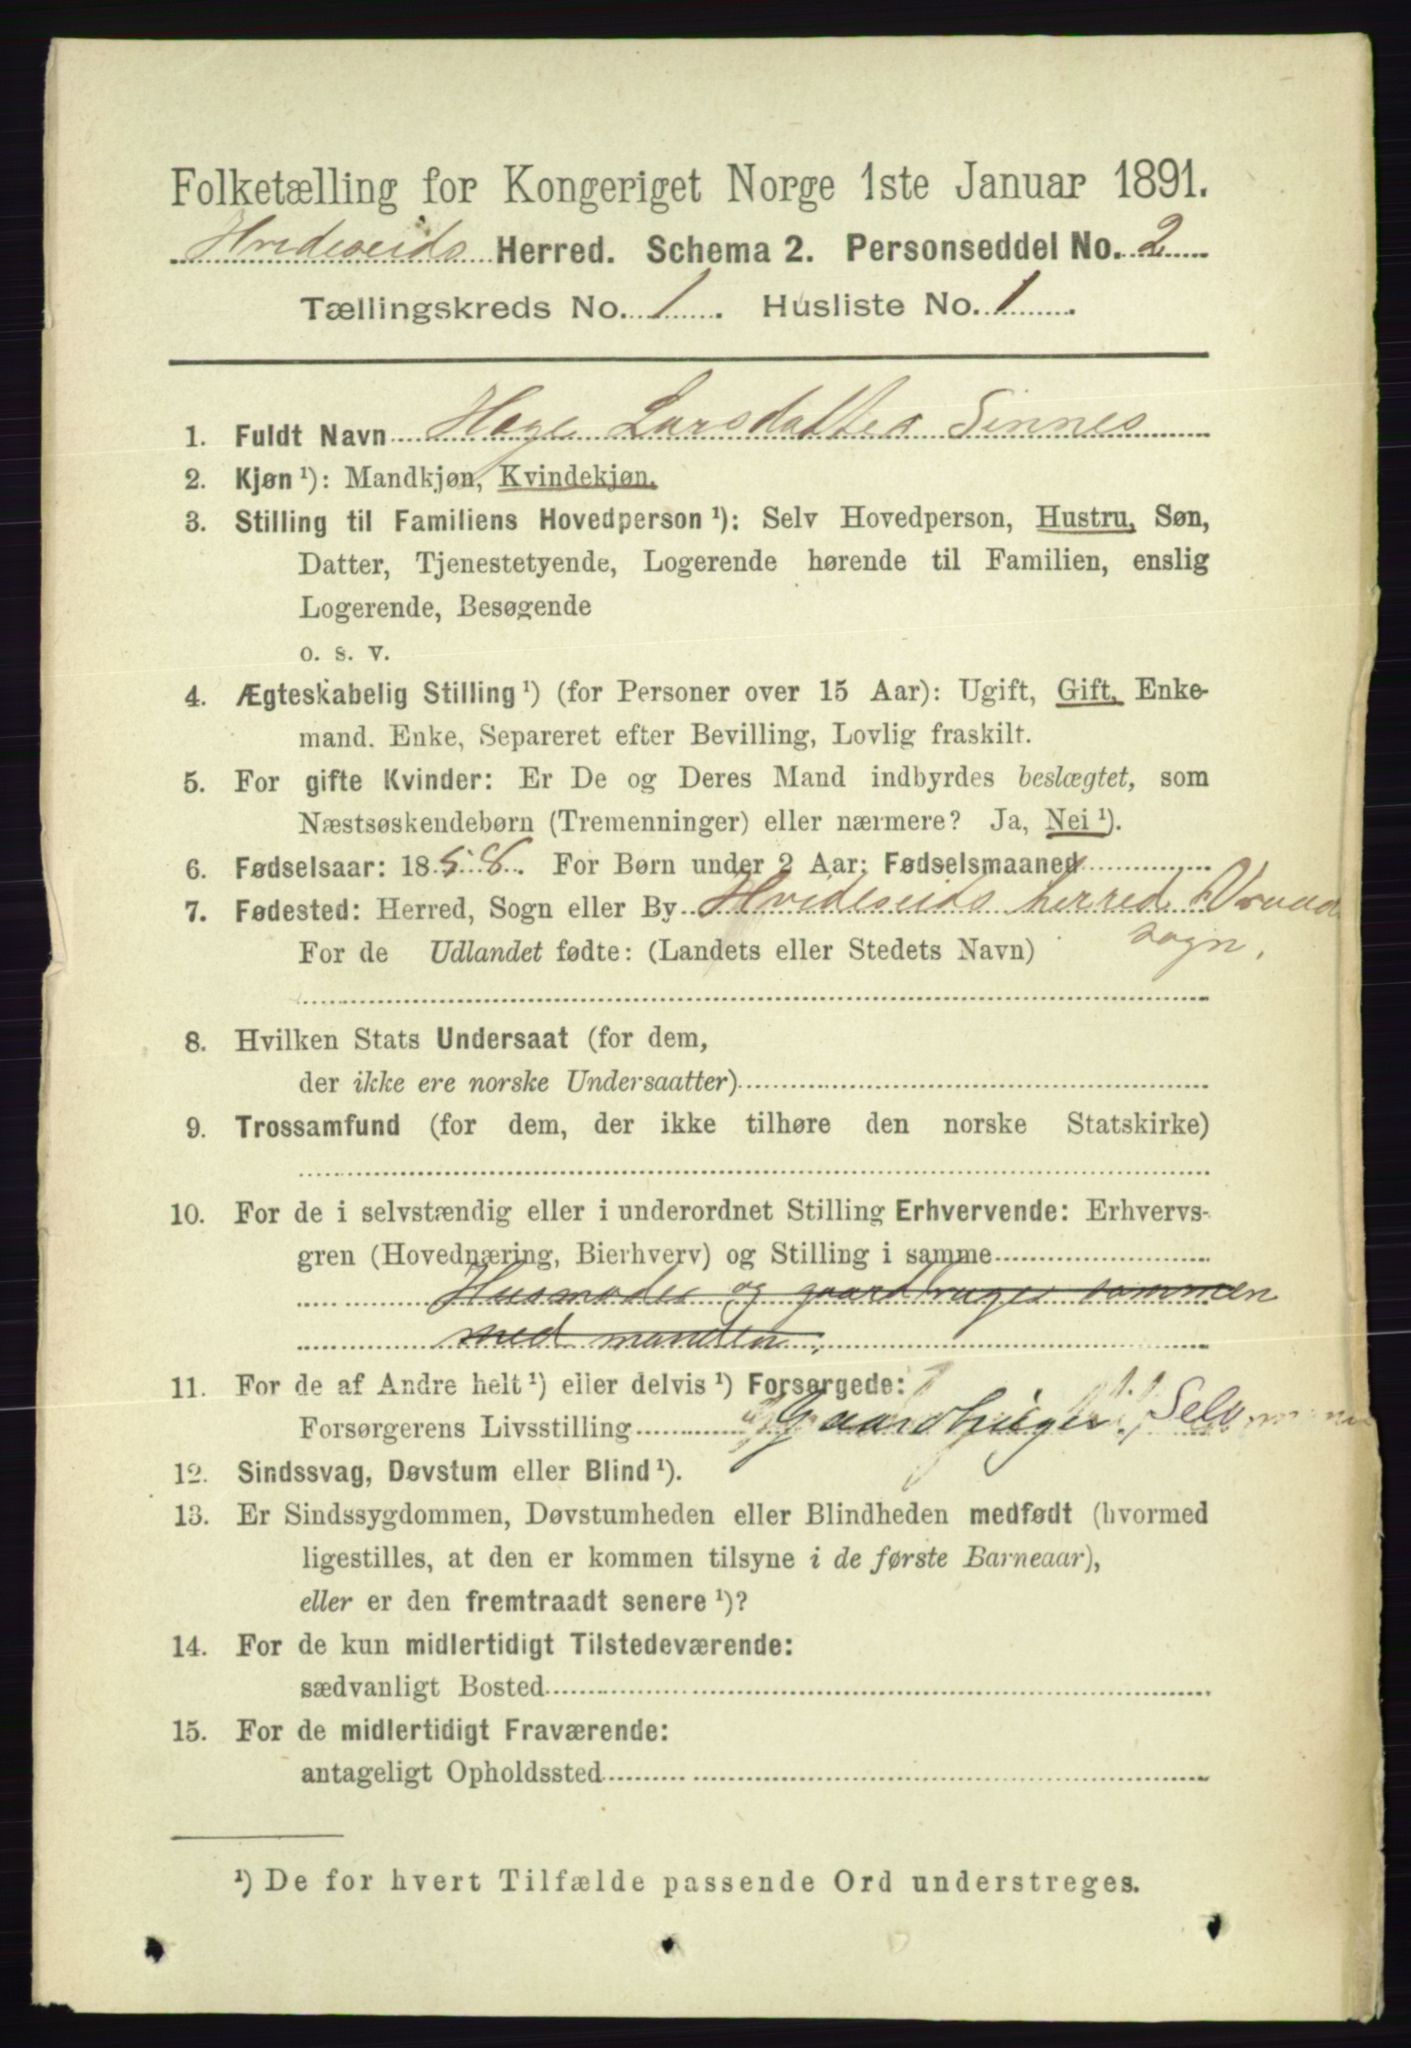 Folketælling for Kongeriget Norge 1ste Januar 1891.
Hvideseids Herred. Schema 2. Personseddel No. 2
Tællingskreds No. 1. Husliste No. 1.
1. Fuldt Navn Hæge Larsdatter Sinnes
2. Kjøn ¹): Mandkjøn, Kvindekjøn.
3. Stilling til Familiens Hovedperson ¹): Selv Hovedperson, Hustru, Søn,
Datter, Tjenestetyende, Logerende hørende til Familien, enslig
Logerende, Besøgende
o. s. v.
4. Ægteskabelig Stilling ¹) (for Personer over 15 Aar): Ugift, Gift, Enke-
mand. Enke, Separeret efter Bevilling, Lovlig fraskilt.
5. For gifte Kvinder: Er De og Deres Mand indbyrdes beslægtet, som
Næstsøskendebørn (Tremenninger) eller nærmere? Ja, Nei ¹).
6. Fødselsaar: 1858. For Børn under 2 Aar: Fødselsmaaned
7. Fødested: Herred, Sogn eller By Hvideseids herred Vraad
sogn.
For de Udlandet fødte: (Landets eller Stedets Navn)
8. Hvilken Stats Undersaat (for dem,
der ikke ere norske Undersaatter)
9. Trossamfund (for dem, der ikke tilhøre den norske Statskirke)
10. For de i selvstændig eller i underordnet Stilling Erhvervende: Erhvervs-
gren (Hovednæring, Bierhverv) og Stilling i samme
Husmoder og gaardbruger sammen
med manden.
11. For de af Andre helt ¹) eller delvis ¹) Forsørgede:
Forsørgerens Livsstilling Gaardbruger, Selv
12. Sindssvag, Døvstum eller Blind ¹).
13. Er Sindssygdommen, Døvstumheden eller Blindheden medfødt (hvormed
ligestilles, at den er kommen tilsyne i de første Barneaar),
eller er den fremtraadt senere ¹)?
14. For de kun midlertidigt Tilstedeværende:
sædvanligt Bosted
15. For de midlertidigt Fraværende:
antageligt Opholdssted
¹) De for hvert Tilfælde passende Ord understreges.